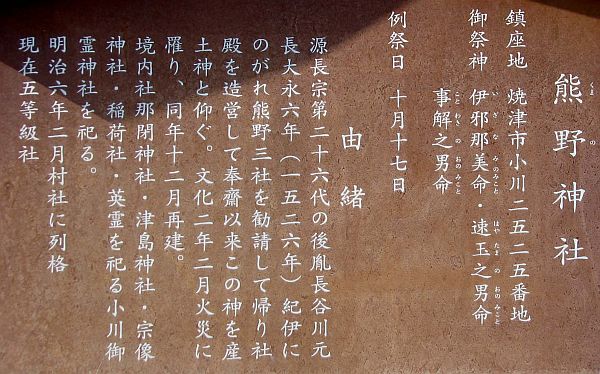 熊野神社
くまの
鎮座地 焼津市小川二五二五番地
御祭神 伊邪那美命・速玉之男命
いざなみのみこと はやたまのおのみこと
事解之男命
ことわきのおのみこと
例祭日 十月十七日
由緒
源長宗第二十六代の後胤長谷川元
長大永六年（一五二六年）紀伊に
のがれ熊野三社を勧請して帰り社
殿を造営して奉齋以来この神を産
土神と仰ぐ。文化二年二月火災に
罹り、同年十二月再建。
境内社那閉神社・津島神社・宗像
神社・稲荷社・英霊を祀る小川御
霊神社を祀る。
明治六年二月村社に列格
現在五等級社